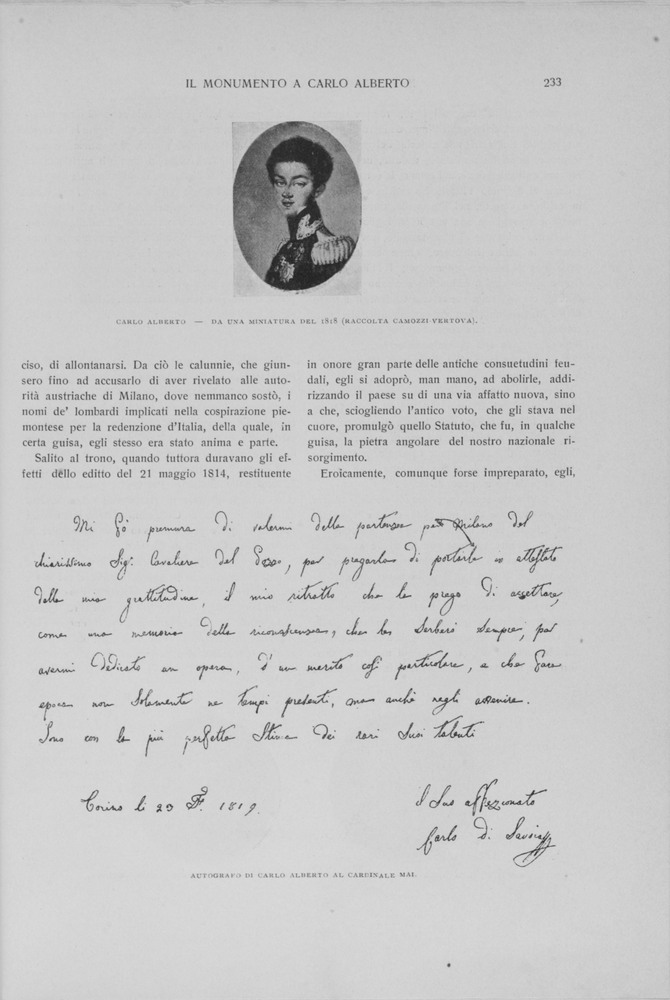 IL MONUMENTO A CARLO ALBERTO 233
CARLO ALBERTO — DA UNA MINIATURA DEL 1818 (RACCOLTA CAMOZZI-VERTOVA).
ciso, di allontanarsi. Da ciò le calunnie, che giun-
sero fino ad accusarlo di aver rivelato alle auto-
rità austriache di Milano, dove nemmanco sostò, i
nomi de' lombardi implicati nella cospirazione pie-
montese per la redenzione d'Italia, della quale, in
certa guisa, egli stesso era stato anima e parte.
Salito al trono, quando tuttora duravano gli ef-
fetti dello editto del 21 maggio 1814, restituente
in onore gran parte delle antiche consuetudini feu-
dali, egli si adoprò, man mano, ad abolirle, addi-
rizzando il paese su di una via affatto nuova, sino
a che, sciogliendo l'antico voto, che gli stava nel
cuore, promulgò quello Statuto, che fu, in qualche
guisa, la pietra angolare del nostro nazionale ri-
sorgimento.
Eroicamente, comunque forse impreparato, egli,
Mi fò premura di valermi della partenza per Milano del
chiarissimo Sig.r Cavaliere dal Pozzo, per pregarlo di portarle in attestato
della mia grattitudine, il mio ritratto che la prego di accettare,
come una memoria della riconoscenza, che le serberò sempre, per
avermi dedicato un opera, d'un merito così particolare, e che farà
epoca non solamente ne tempi presenti, ma anche negli avvenire.
Sono con la più perfetta stima dei rari suoi talenti
Torino li 23 F. 1819.
Il Suo affezionato
Carlo di Savoia
AUTOGRAFO DI CARLO ALBERTO AL CARDINALE MAI.